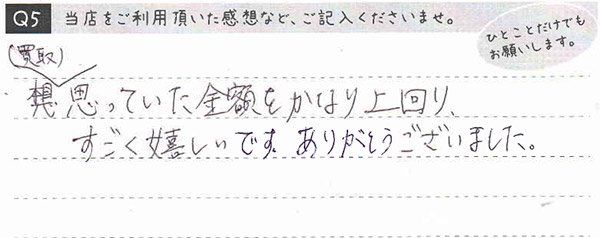 Q5 当店をご利用頂いた感想など、ご記入くださいませ。
ひとことだけでも
お願いします。
(買取)
想思っていた金額をかなり上回り、
すごく嬉しいです。ありがとうございました。